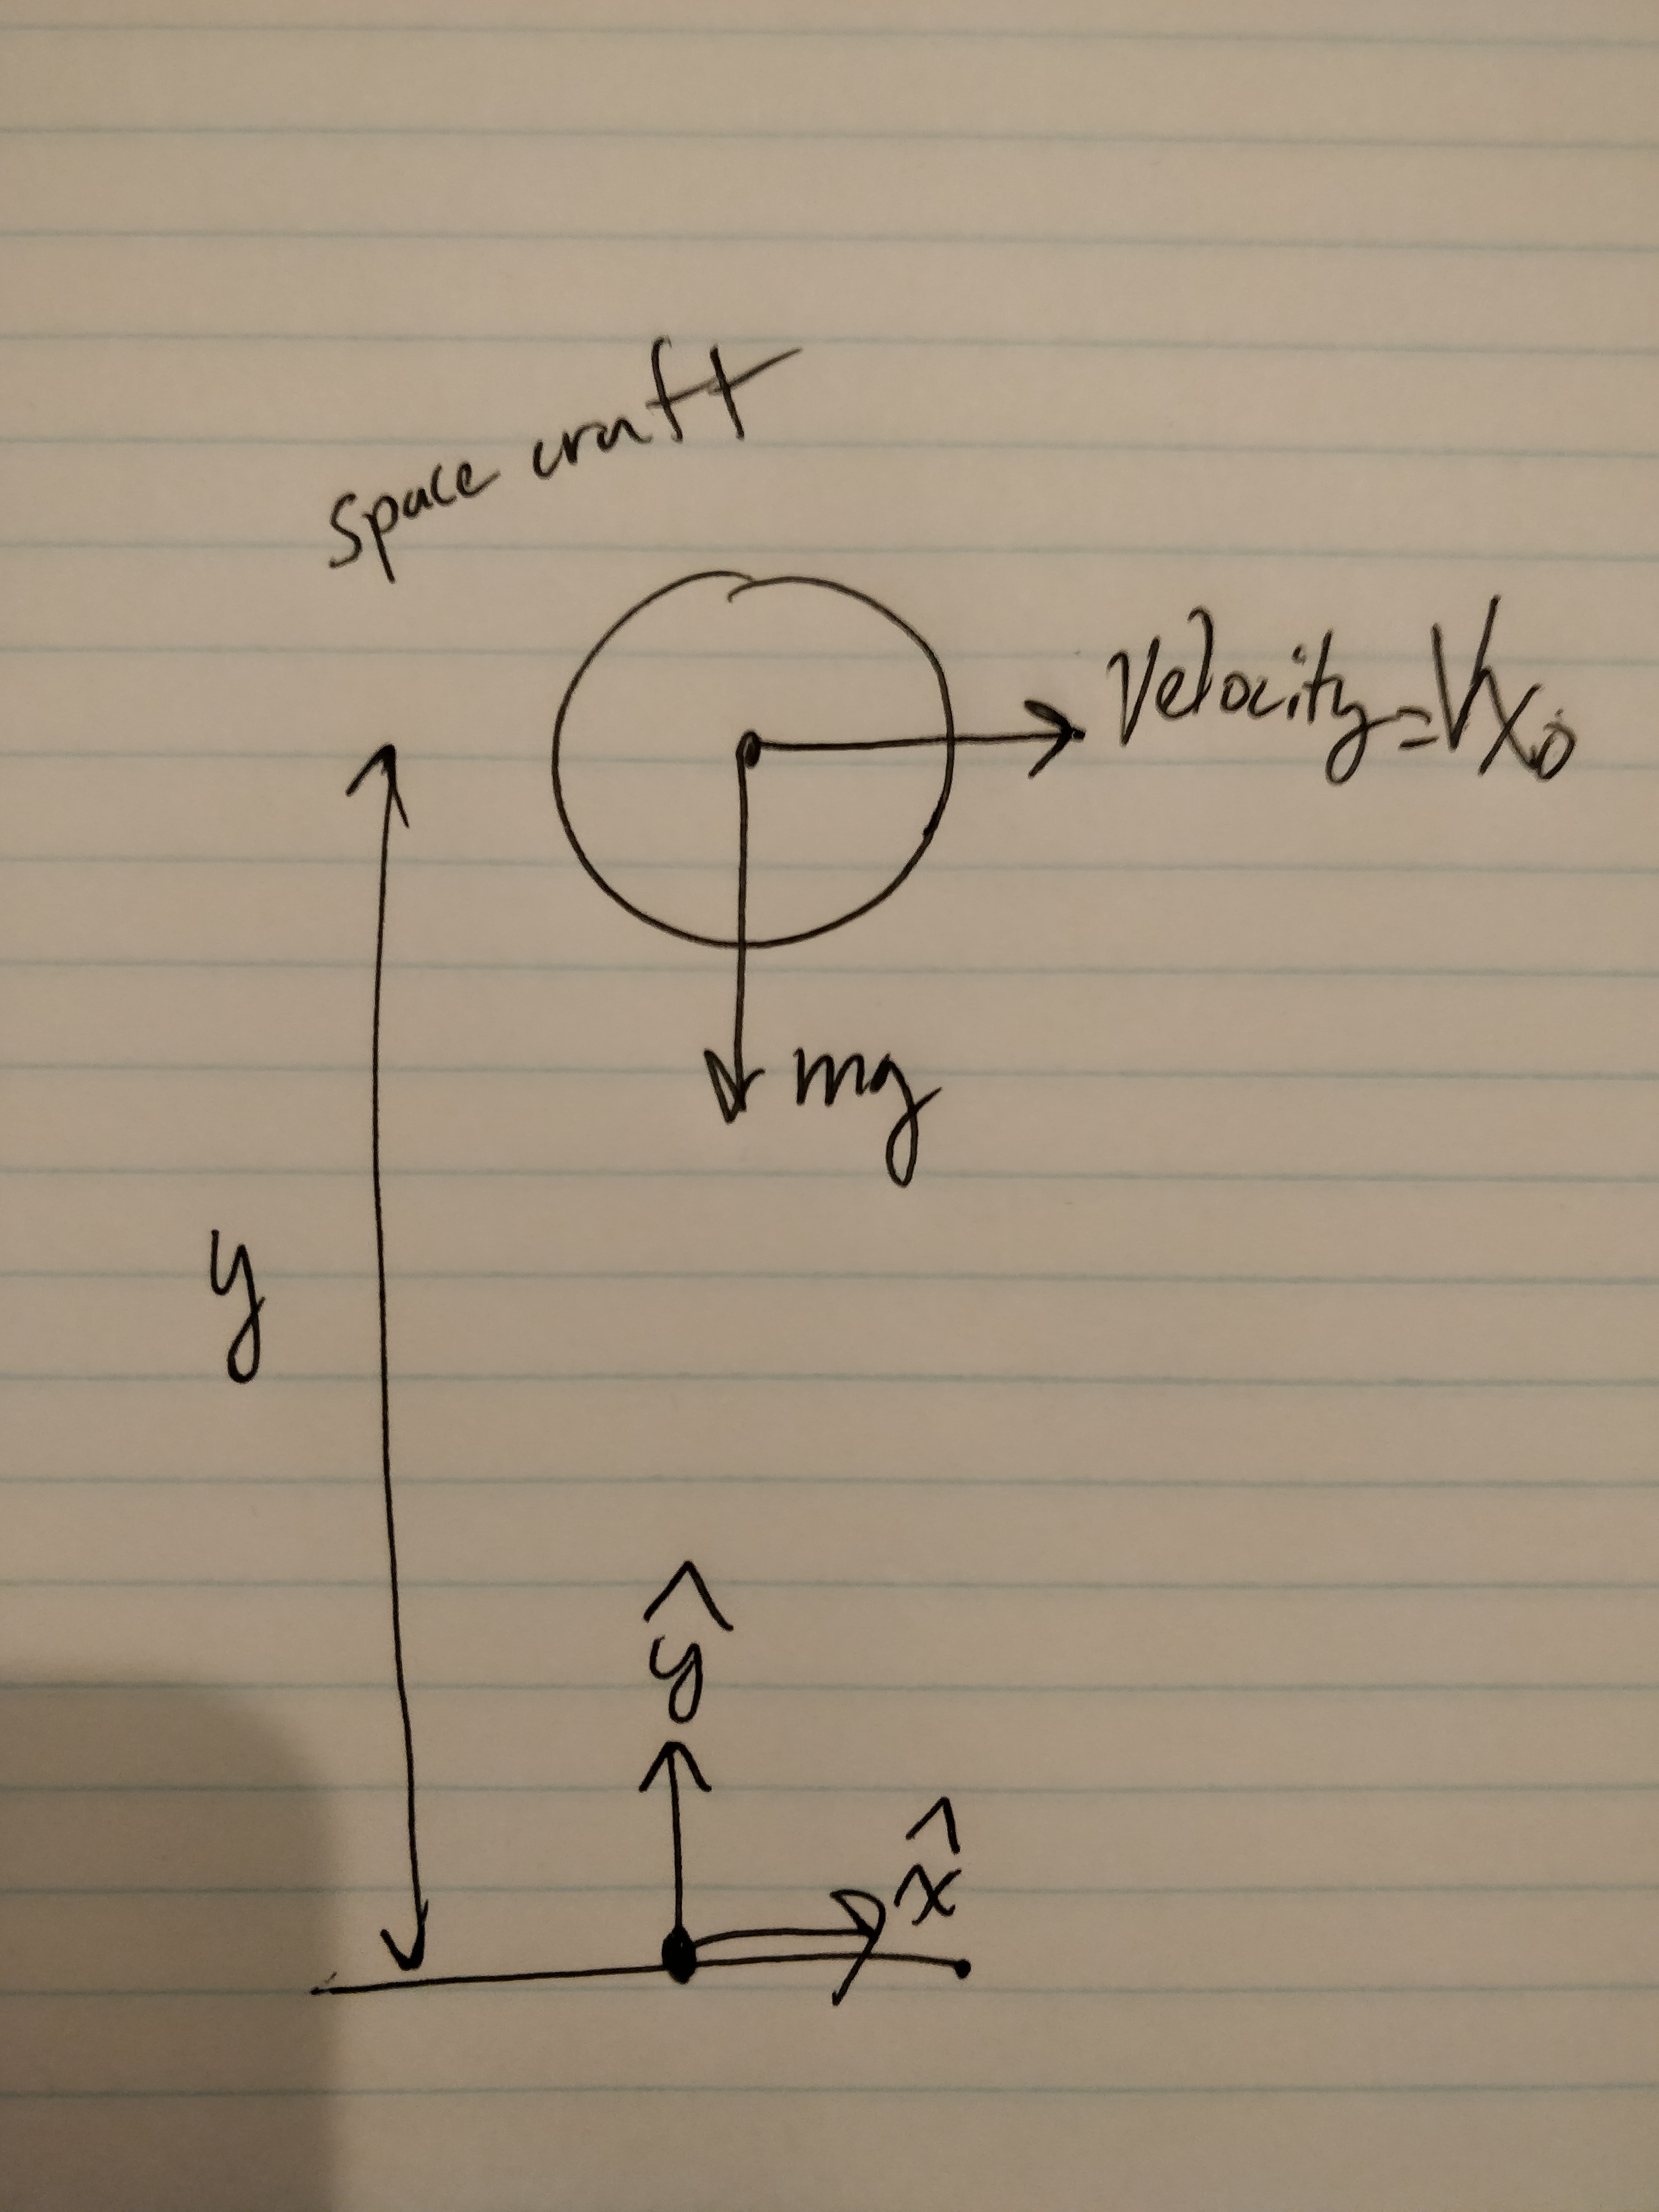 space craft
Velocity=Vx₀
mg
y
ŷ
x̂